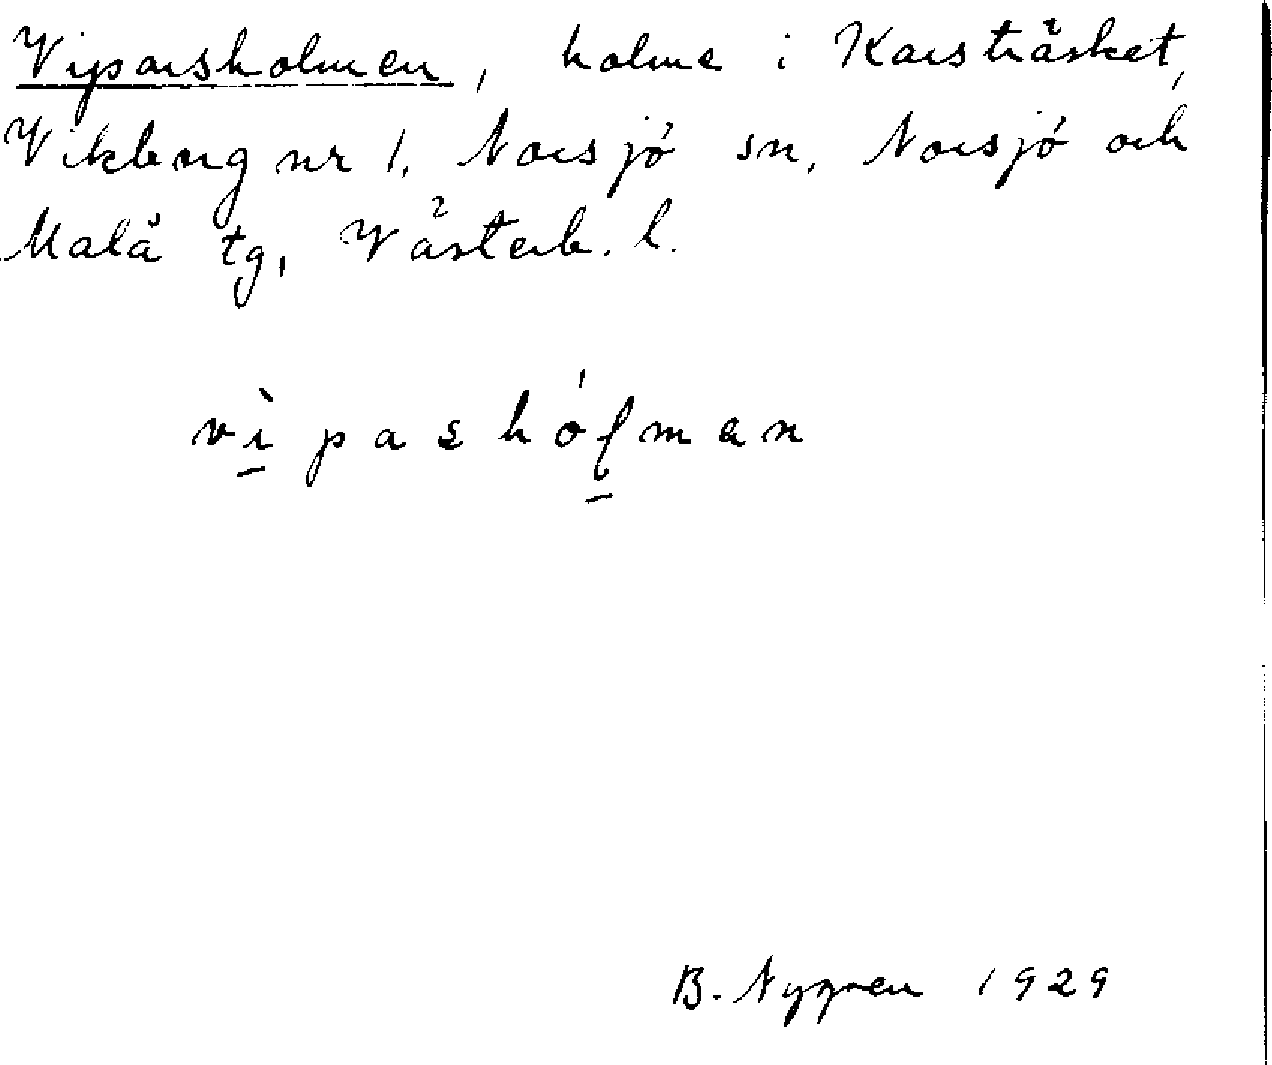 Viparsholmen, holme i Karsträsket,
Vikberg nr 1, Norsjö sn, Norsjö och
Malå tg, Västerb. l.
vìpashólman
B. Nygren 1929